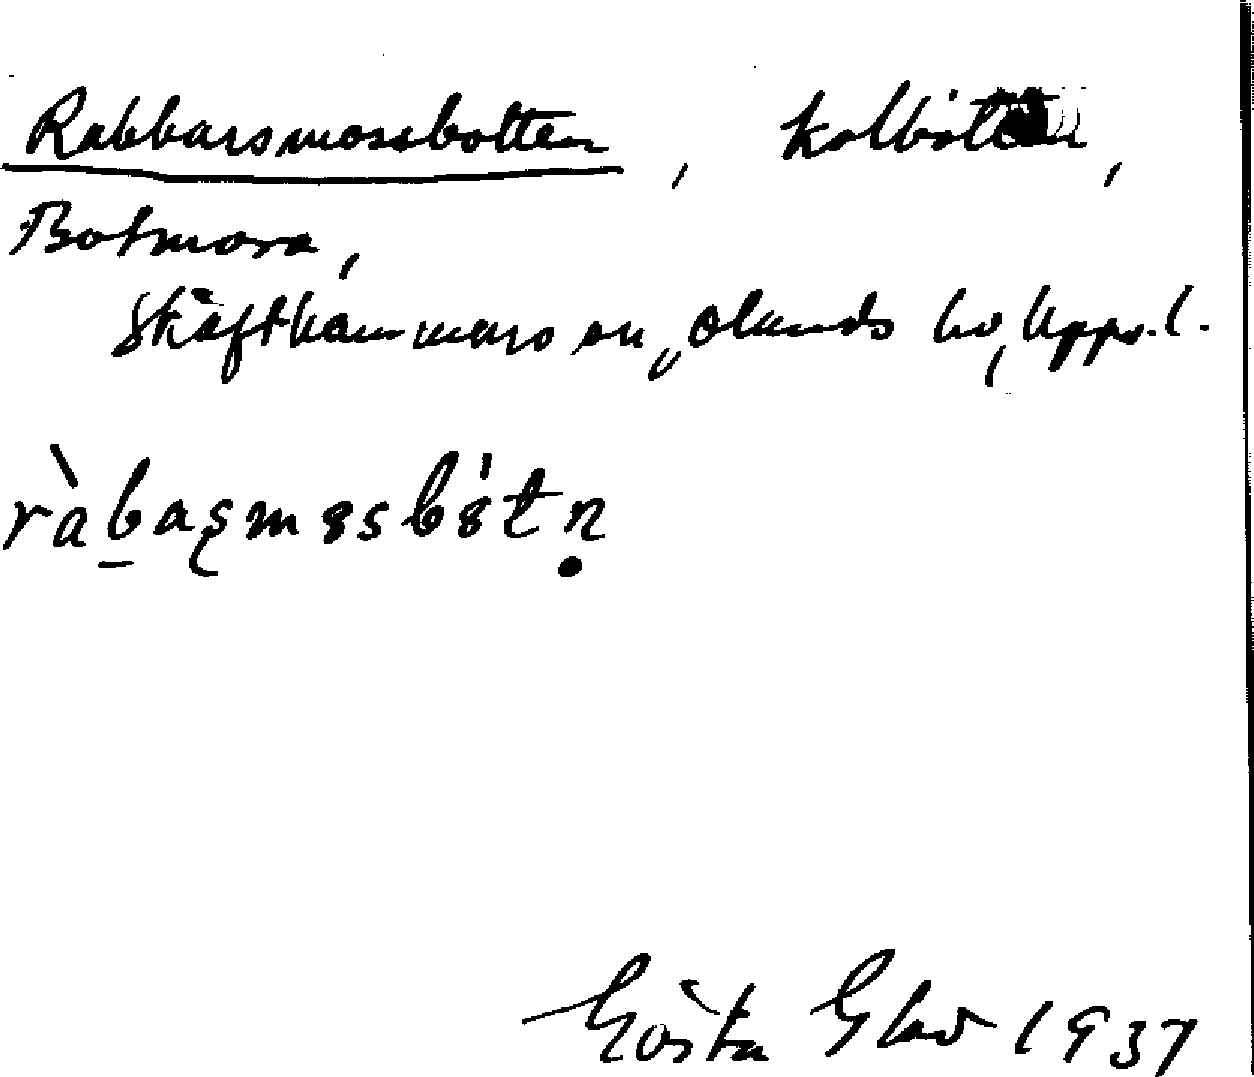 Rabbarsmossbotten, kolbotten,
Botmora,
Skäfthammars sn, Olands hd, Uppl.
ràbaʂmɞsbɞ̍tṇ
Gösta 1937